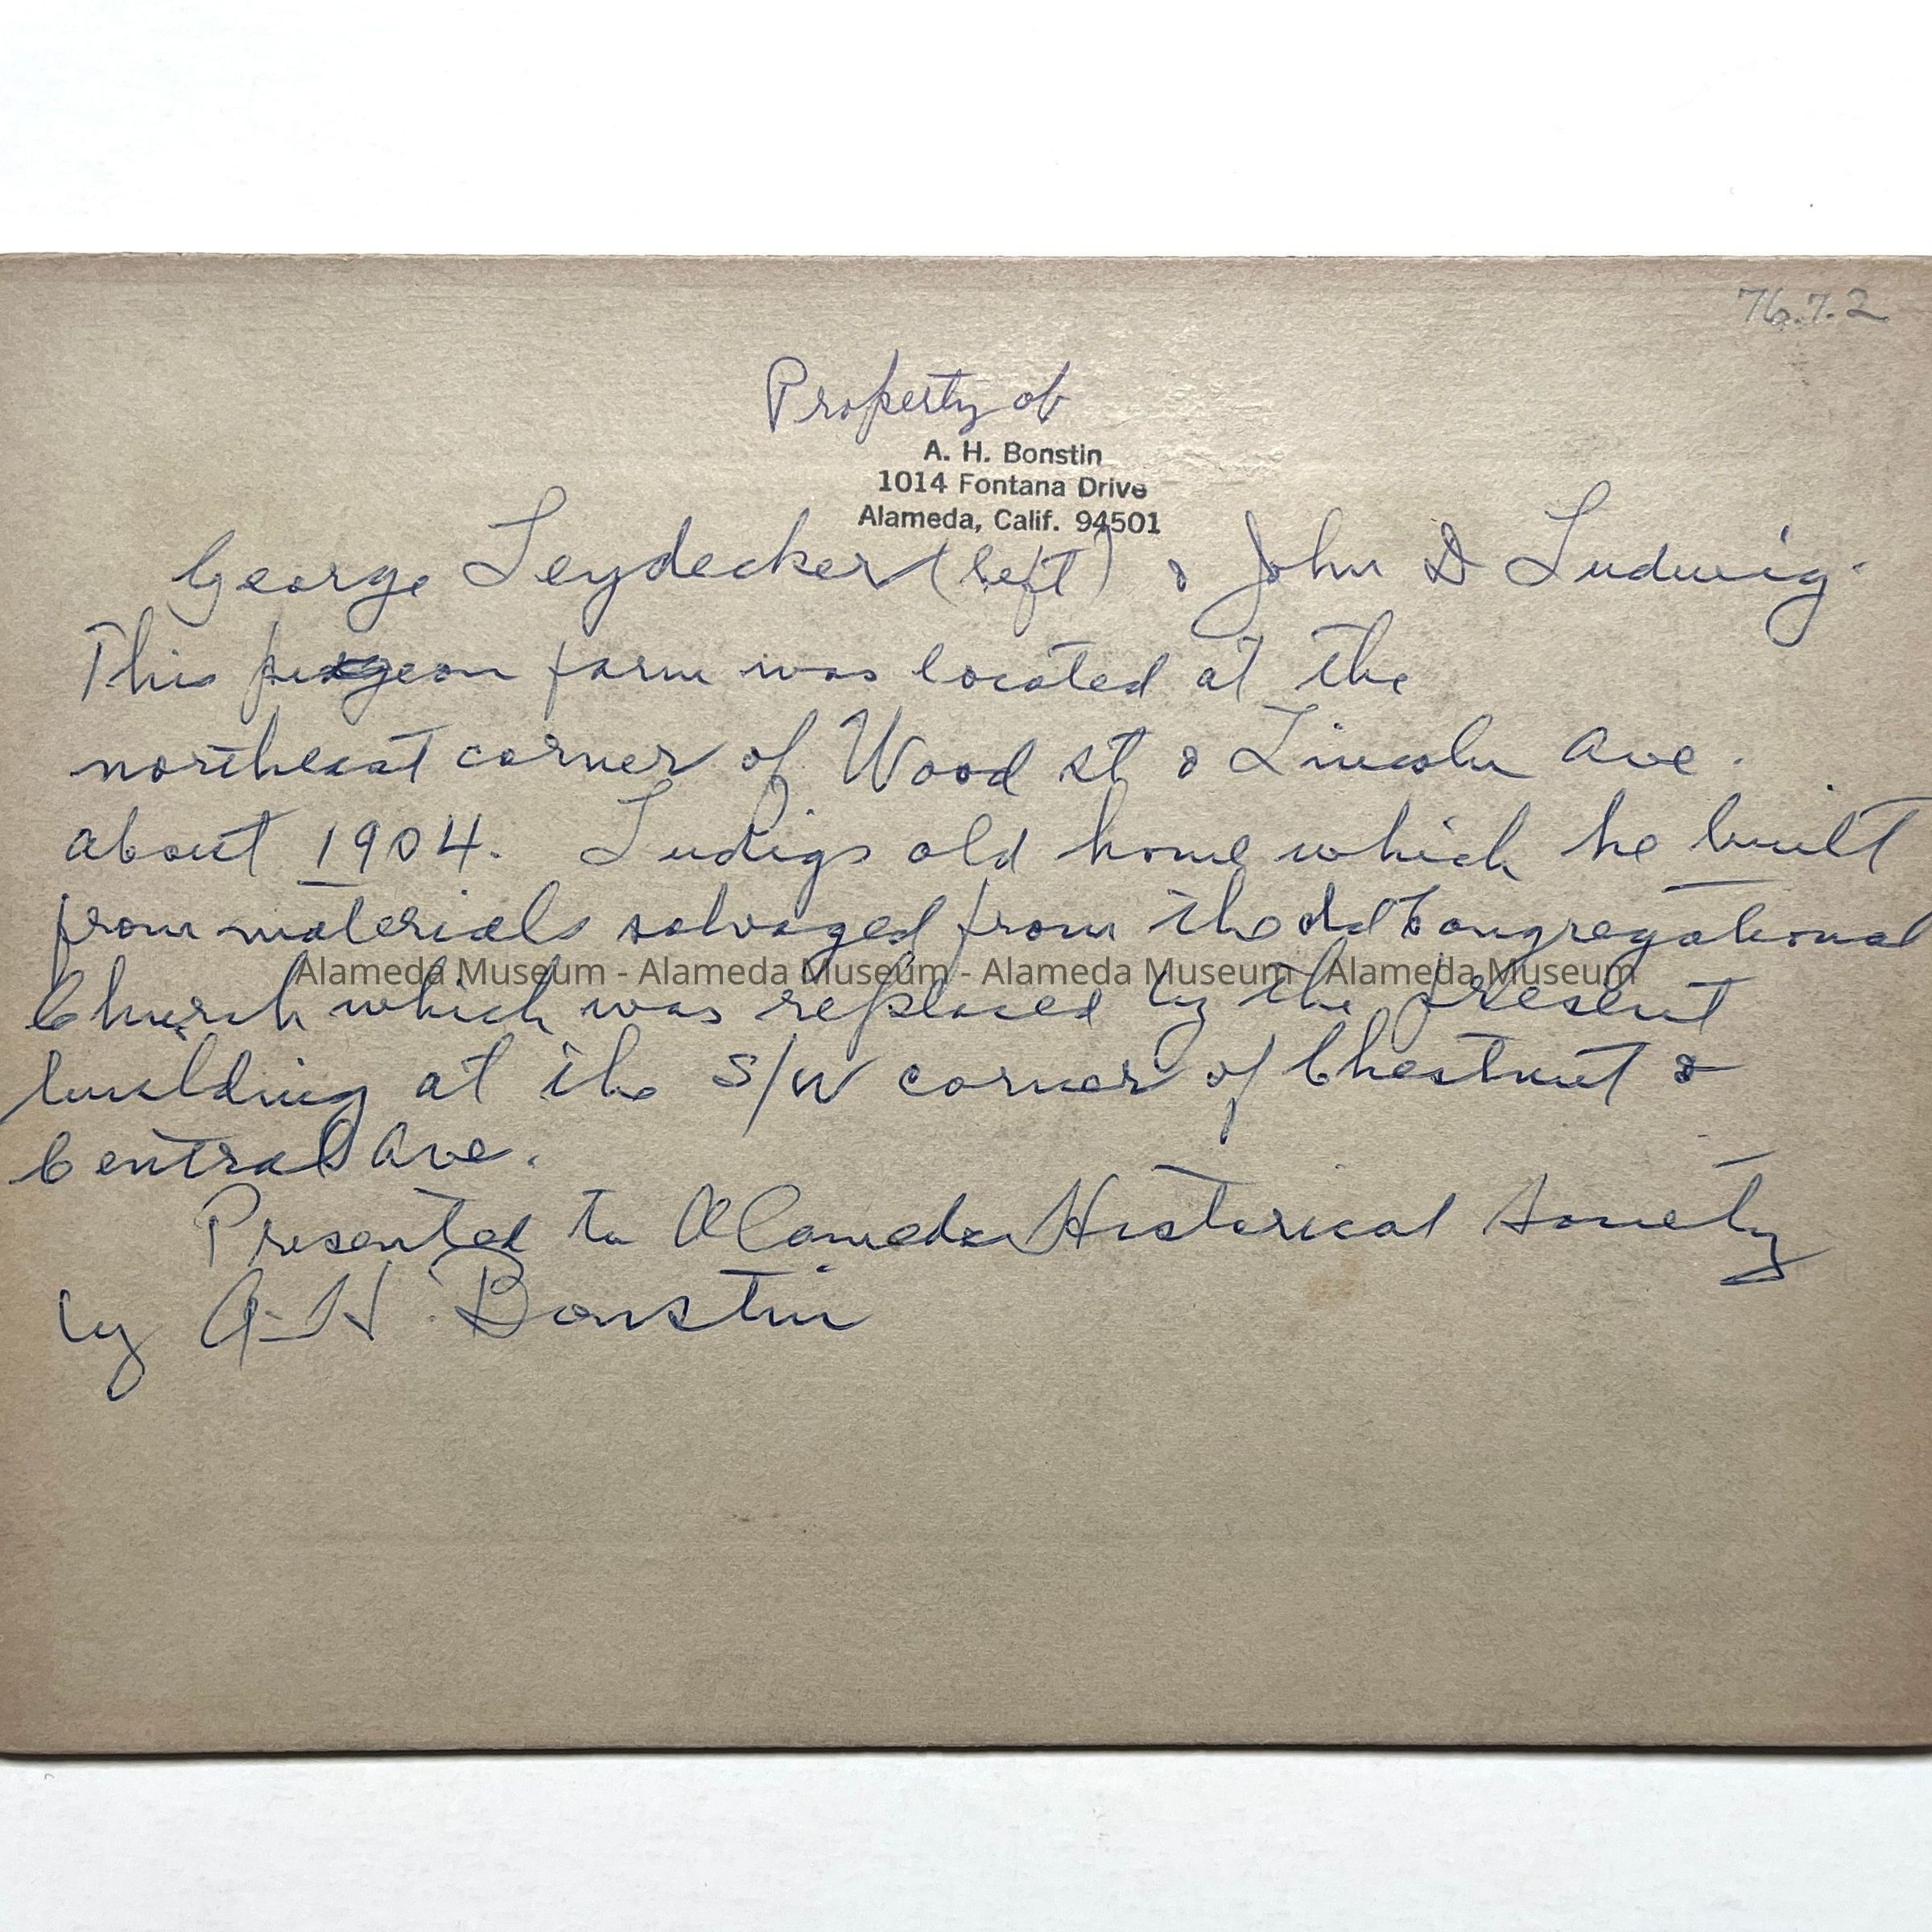 76.7.2
Property of
A. H. Bonstin
1014 Fontana Drive
Alameda, Calif. 94501
George Leydecker (left) & John D Ludwig.
This pigeon farm was located at the
northeast corner of Wood St & Lincoln Ave.
about 1904. Ludigs old home which he built
from materials salvaged from the old Congregational
Alameda Museum - Alameda Museum - Alameda Museum - Alameda Museum
Church which was replaced by the present
building at the S/W corner of Chestnut &
Central Ave.
Presented to Alameda Historical Society
by A-H. Bonstin